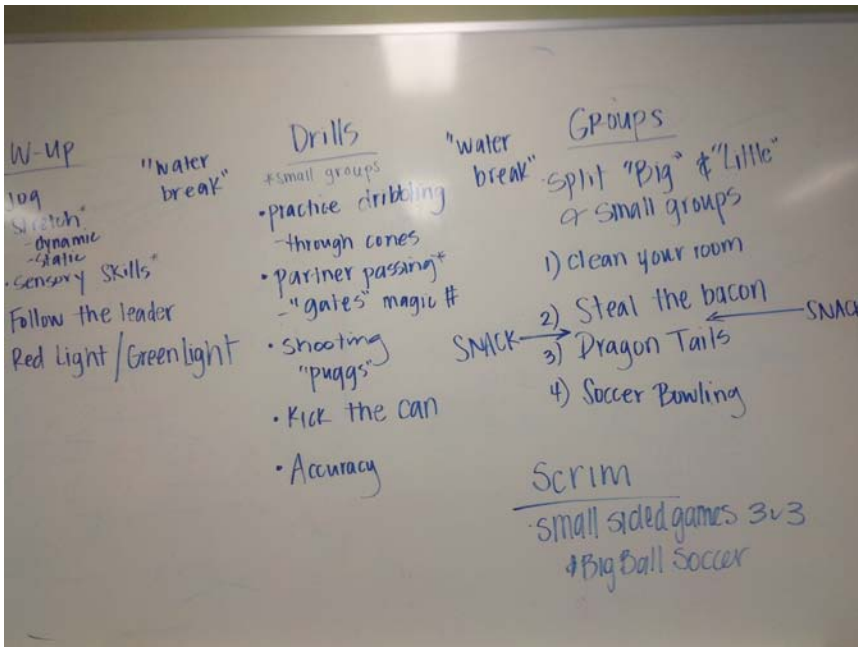 W-up
Jog
Stretch*
-dynamic
-static
·Sensory Skills*
Follow the leader
Red Light/Green Light
"water
break"
Drills
*small groups
•practice dribbling
-through cones
•partner passing*
-"gates" magic #
•shooting
"puggs"
•Kick the can
•Accuracy
"water
break"
Groups
·Split "Big" & "Little"
& small groups
1) clean your room
2) Steal the bacon
SNACK
SNACK
3) Dragon Tails
4) Soccer Bowling
Scrim
·small sided games 3v3
&Big Ball Soccer